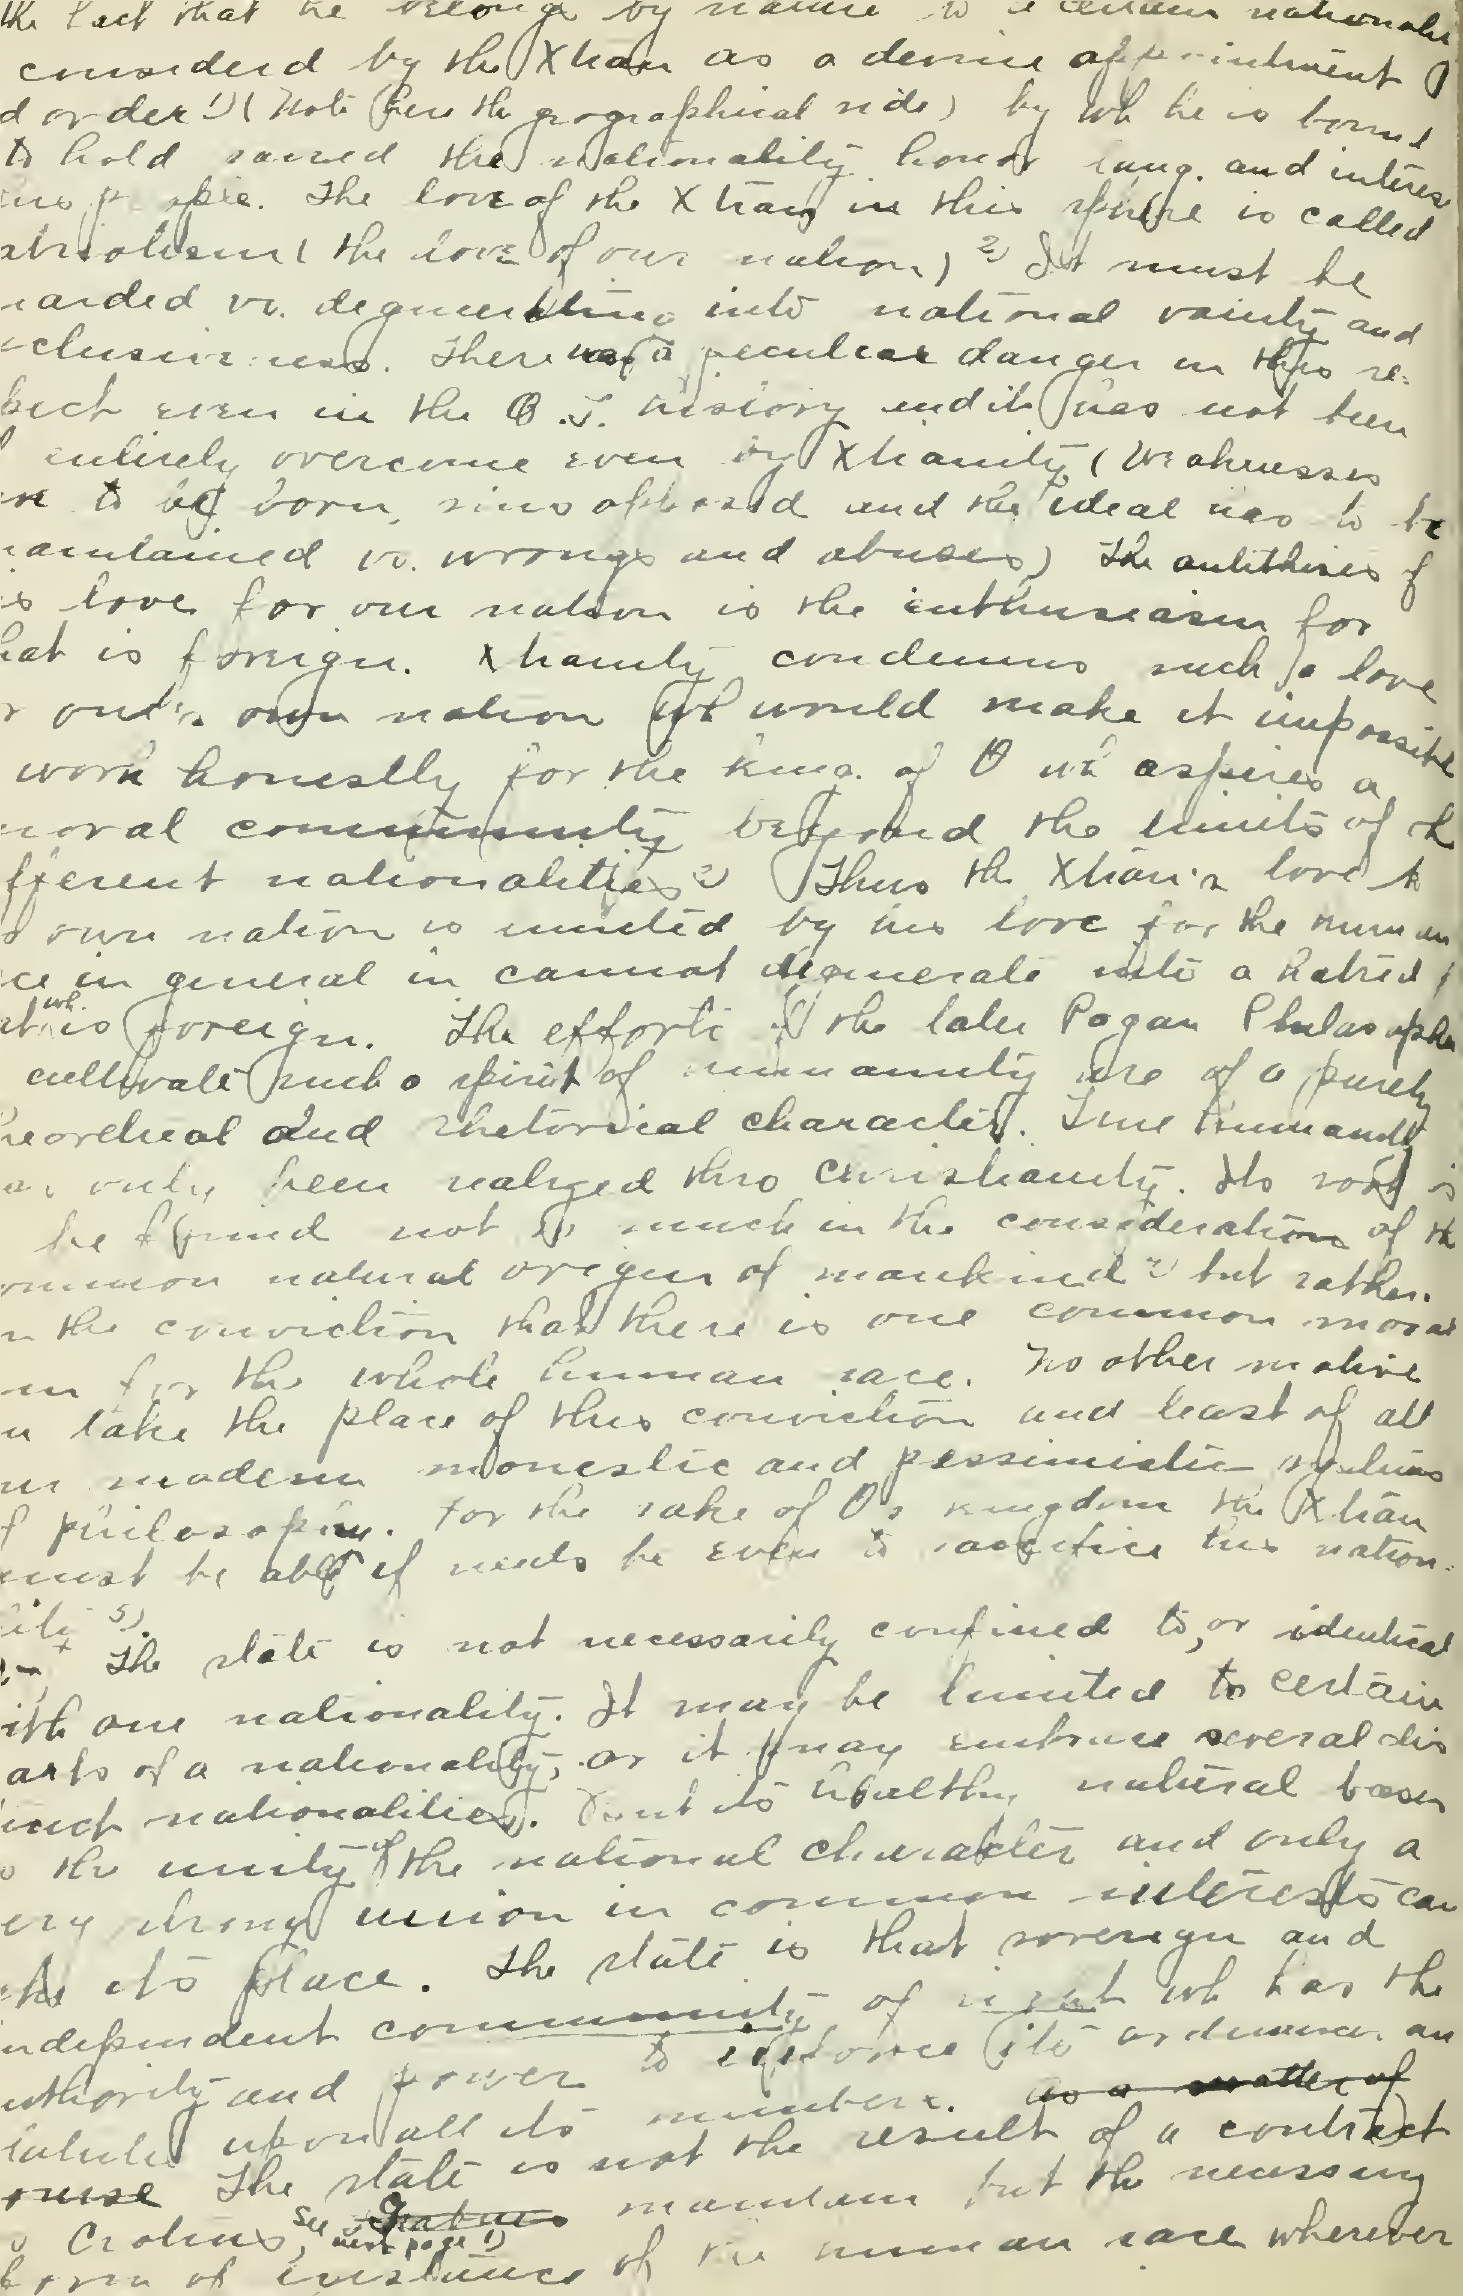 the fact that he belongs by nature to a certain nationali
considered by the Xtian as a devine appointment
d order 1) ( Note here the geographical side) by wh he is bound
to hold sacred the nationality honor lang. and interes
The love of the Xtian in this sphere is called
atriotism ( the love of our nation) 2) It must be
uarded vs. degenerating into national vainty and
clusiveness. There was a peculiar danger in this re-
pect even in the O.T. history and it has not been
entirely overcome even by Xtianity. ( Weaknesses
re to be born, sins opposed and the ideal has to be
aintained vs. wrongs and abuses) The antithises of
is love for our nation is the enthusiasm for
hat is foreign. Xtianity condemns such a love
r one's own nation wh would make it impossible
work honestly for the king. of θ wh aspires a
moral community beyond the limits of th
fferent nationalities 2) Thus the Xtian's love to
s own nation is limited by his love for the human
ce in general in cannot degenerate into a hatred
at wh. is foreign. The efforts of the later Pagan Philosophe
cultivate such a spirit of humanity are of a purely
heoretical and rhetorical character. True humanity
as only been realized thro Christianity. Its root is
be found not so much in the consideration of th
ommon natural origin of mankind 2) but rather
n the conviction that there is one common moral
for the whole human race. No other motive
n take the place of this conviction and least of all
ur modern monestic and pessimistic systems
f philosophy. For the sake of θ's kingdom the Xtian
must be able if needs be even to sacrifice this nation-
lity 5).
The state is not necessarily confined to, or identical
ith one nationality. It may be limited to certain
arts of a nationality, or it may embrace several dis
inct nationalities. But its healthy natural basis
s the unity of the national character and only a
ery strong union in common interests can
ake its place. The state is that sovereign and
ndependent community of right wh has the
uthority and power to enforce its ordinances an
tatutes upon all its members. as a matter of
ourse The state is not the result of a contract
o Crotius, see next page 1) maintain but the necessary
form of existence of the human race wherever